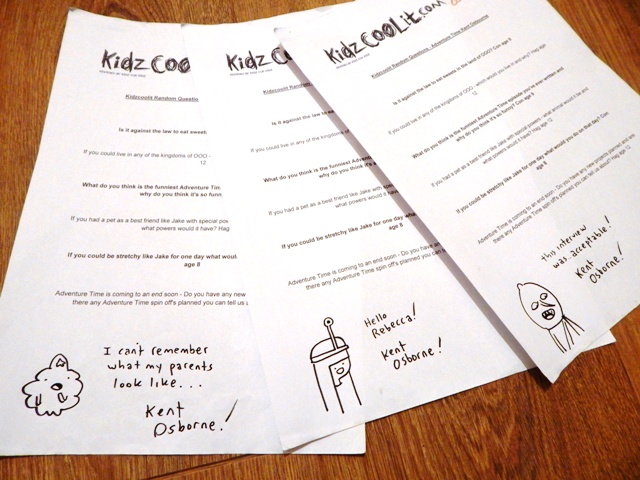 Kidz Coo
Kidzcoolit Random Questio
Is it against the law to eat sweet
If you could live in any of the kingdoms of OOO -
12
What do you think is the funniest Adventure Tim
why do you think it's so funn
If you had a pet as a best friend like Jake with special pow
what powers would it have? Hag
If you could be stretchy like Jake for one day what woul
age 8
Adventure Time is coming to an end soon - Do you have any new
there any Adventure Time spin off's planned you can tell us
I can't remember
what my parents
look like...
Kent
Osborne!
Kidz C
Kidzcoolit Random
Is it against the law to
If you could live in any of the kingdoms of
12
What do you think is the funniest Advent
why do you think it's so
If you had a pet as a best friend like Jake with spec
what powers would it have
If you could be stretchy like Jake for one day what
age 8
Adventure Time is coming to an end soon - Do you have an
there any Adventure Time spin off's planned you can tell
Hello
Rebecca!
Kent
Osborne!
Kidz Coolit.com
Kidzcoolit Random Questions - Adventure Time Kent Osbourne
Is it against the law to eat sweets in the land of OOO? Con age 8
If you could live in any of the kingdoms of OOO - which would you live in and why? Hag age
12
What do you think is the funniest Adventure Time episode you've ever written and
why do you think it's so funny? Con age 8
If you had a pet as a best friend like Jake with special powers - what animal would it be and
what powers would it have? Hag age 12
If you could be stretchy like Jake for one day what would you do on that day? Con
age 8
Adventure Time is coming to an end soon - Do you have any new projects planned and
there any Adventure Time spin off's planned you can tell us about? Hag age 12
this interview
was acceptable!
Kent
Osborne!